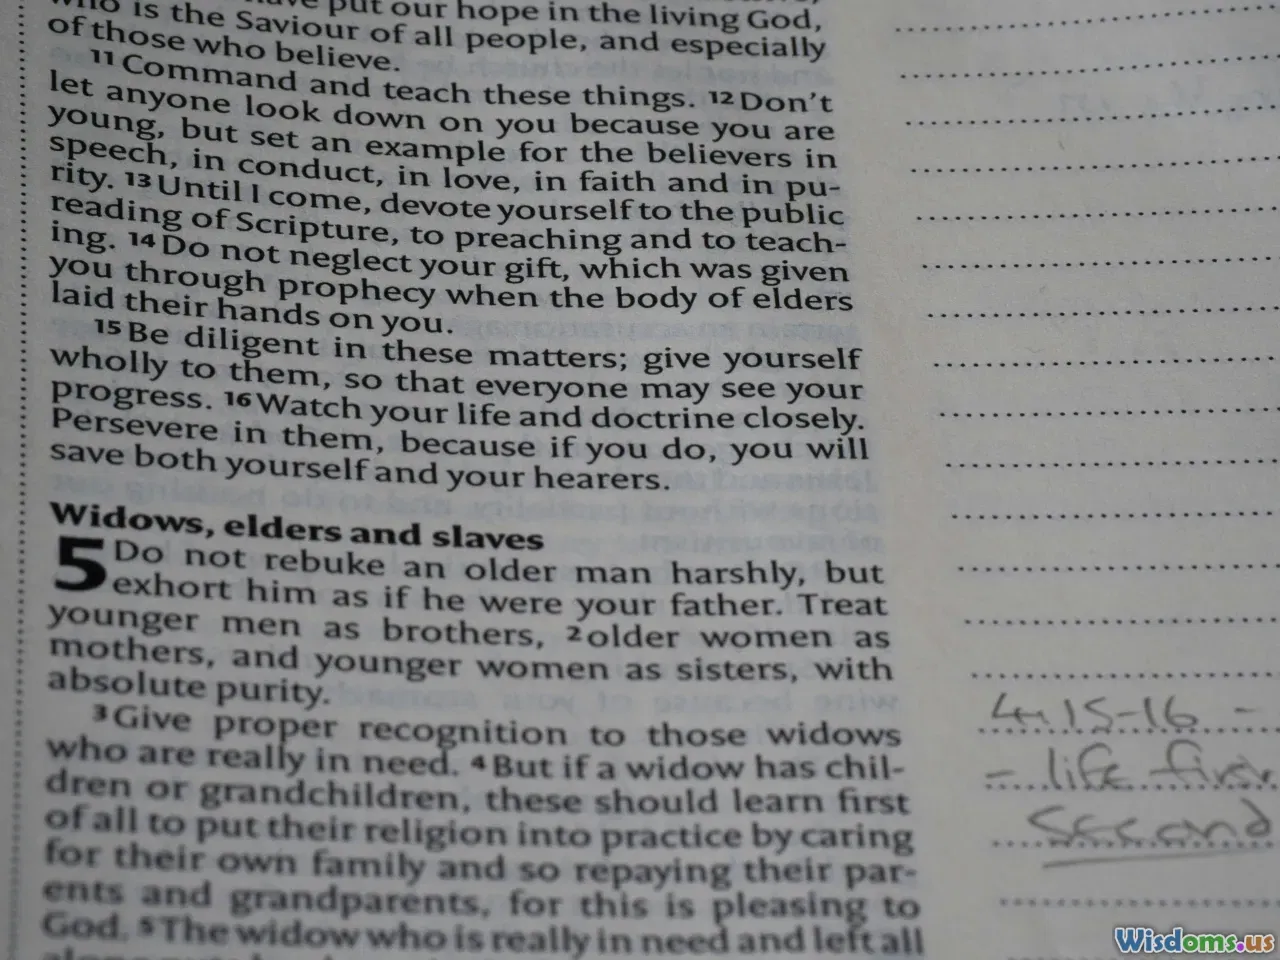 who is the Saviour of all people, and especially
of those who believe.
11 Command and teach these things. 12 Don't
let anyone look down on you because you are
young, but set an example for the believers in
speech, in conduct, in love, in faith and in pu-
rity. 13 Until I come, devote yourself to the public
reading of Scripture, to preaching and to teach-
ing. 14 Do not neglect your gift, which was given
you through prophecy when the body of elders
laid their hands on you.
15 Be diligent in these matters; give yourself
wholly to them, so that everyone may see your
progress. 16 Watch your life and doctrine closely.
Persevere in them, because if you do, you will
save both yourself and your hearers.
Widows, elders and slaves
5 Do not rebuke an older man harshly, but
exhort him as if he were your father. Treat
younger men as brothers, 2 older women as
mothers, and younger women as sisters, with
absolute purity.
3 Give proper recognition to those widows
who are really in need. 4 But if a widow has chil-
dren or grandchildren, these should learn first
of all to put their religion into practice by caring
for their own family and so repaying their par-
ents and grandparents, for this is pleasing to
God. 5 The widow who is really in need and left all
4:15-16 -
- life first
second
Wisdoms.us